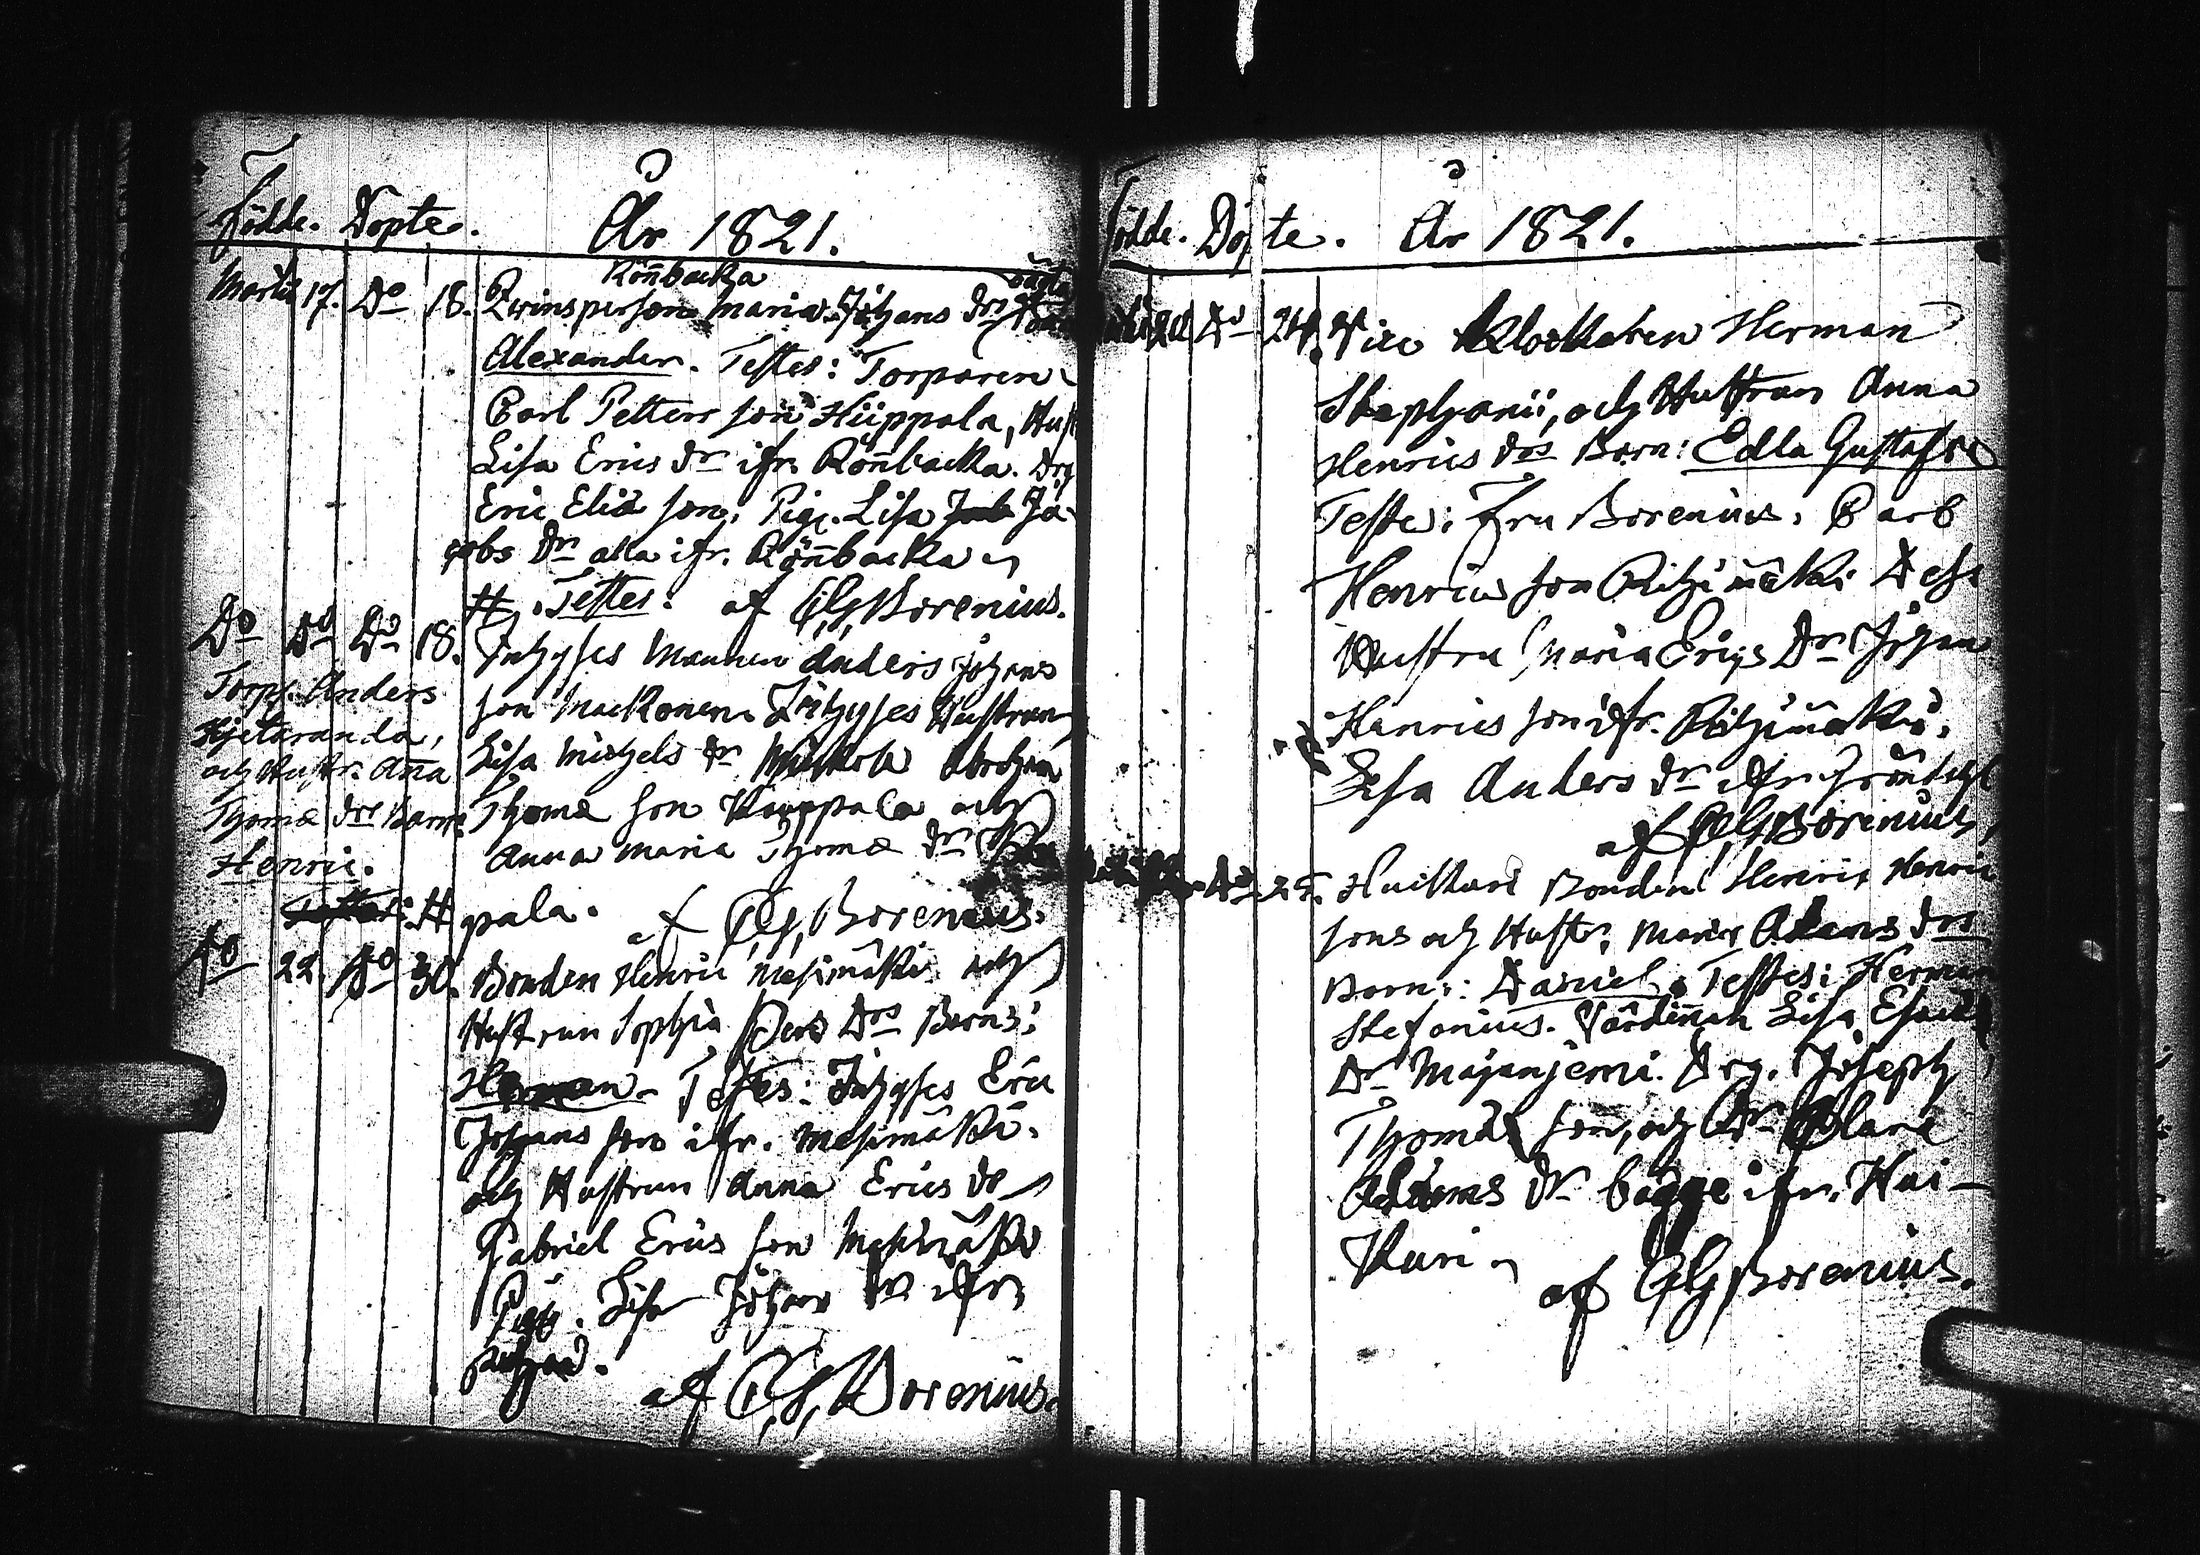 Födde. Döpte. År 1821.
Rönbacka
Martii 17. Do 18. Qvinsperson Maria Johans drs oägta
Alexander. Testes: Torparen
Carl Petterson Hiippala, Hust
Lisa Erics dr ifr. Rönbacka. Drg
Eric Eliæ son, Pig. Lisa Ja-
cobs Dr alla ifr. Rönbacka
# Testes: af C.G. Borenius.
Do Do Do 18. Inhyses Mannen Anders Johans
Torp. Anders
son Mackonen. Inhyses Hustrun
Hjetaranda,
Lisa Michels dr Abraham
och Hustr. Anna
Thomæ son Kauppala och
Thomæ drs Barn:
Anna Maria Thomæ dr
Henric.
# pala. af C.G. Borenius.
Do 22. Do 30. Bonden Henric Mesimäki och
Hustrun Sophia Pers Drs Barn:
Herman. Testes: Inhyses Eric
Johans son ifr. Mesimäki.
och Hustrun Anna Erics dr
Gabriel Erics son Mesimäki
Pig. Lisa Johans dr ifr
af C.G. Borenius.
Födde. Döpte. År 1821.
Do 24. Vice Klockaren Herman
Stephanii, och Hustrun Anna
Henrics drs Barn: Edla Gustafva
Teste: Fru Borenius,
Henrics son Riihimäki Dess
Hustru Maria Erics Dr Johan
Henrics son ifr. Riihimäki.
Lisa Anders dr ifr.
af C.G. Borenius
Do 25. Huikkari Bonden Henric Henric
sons och Hustr. Maria Adams drs
Barn: Daniel. Testes: Herman
Stefanius. Värdinnan Lisa Esaiæ
Dr Majanjemi. Drg. Joseph
Thomæ son, och Dr Clara
Adams dr bägge ifr. Hui-
kari
af C.G. Borenius.